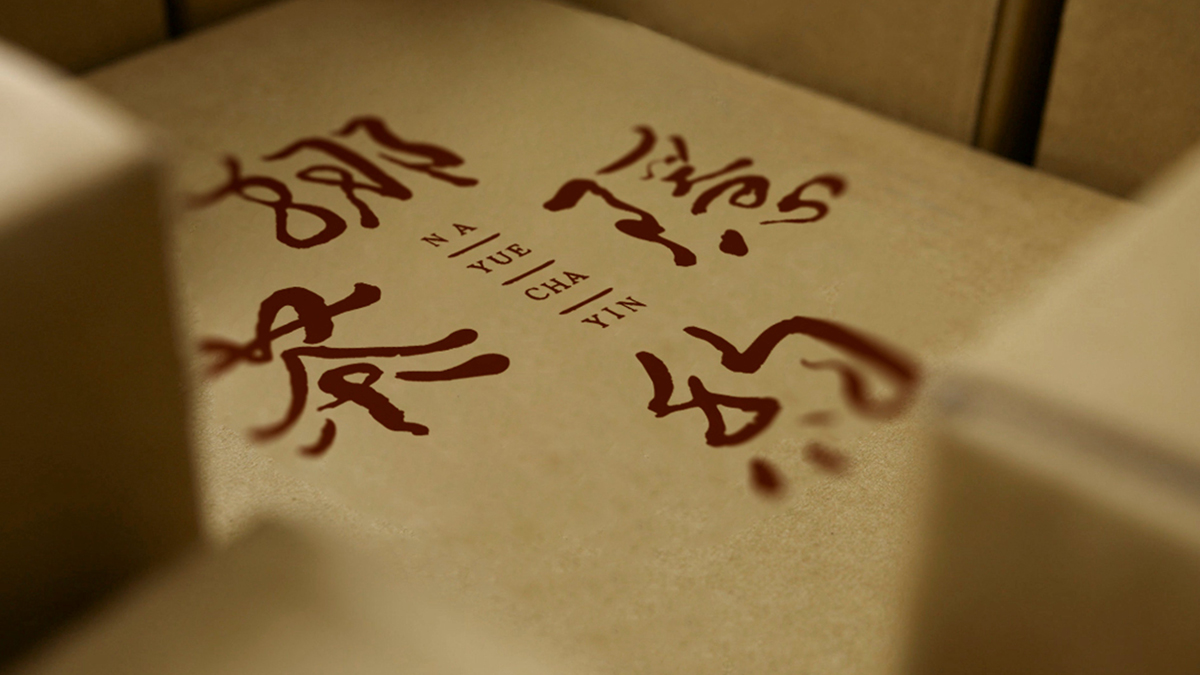 娜
約
茶
隱
NA
YUE
CHA
YIN